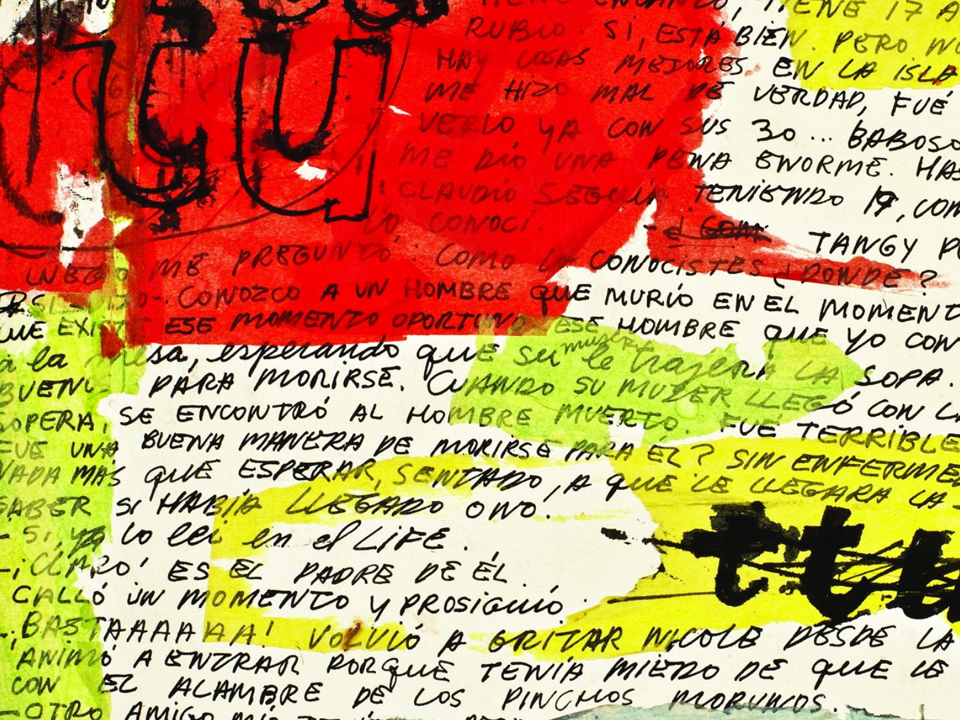 TIENE 17 A
RUBIO. SI, ESTA BIEN. PERO NO
HAY COSAS MEJORES EN LA ISLA
ME HIZO MAL DE VERDAD, FUÉ
VERLO YA CON SUS 30... BABOSO
ME DIO UNA PENA ENORME. HAS
CLAUDIO SEGUIA TENIENDO 19, COM
LO CONOCI.
TANGY P
LUEGO ME PREGUNTÓ: COMO LO CONOCISTES ¿DONDE?
CONOZCO A UN HOMBRE QUE MURIÓ EN EL MOMENT
QUE EXISTE ESE MOMENTO OPORTUNO ESE HOMBRE QUE YO CON
a la mesa, esperando que su mujer le trajera LA SOPA.
BUENA PARA MORIRSE. CUANDO SU MUJER LLEGÓ CON LA
SOPERA, SE ENCONTRÓ AL HOMBRE MUERTO. FUE TERRIBLE
FUE UNA BUENA MANERA DE MORIRSE PARA EL? SIN ENFERME
NADA MAS QUE ESPERAR, SENTADO, A QUE LE LLEGARA LA
SABER SI HABÍA LLEGADO O NO.
- Si, ya lo leí en el LIFE.
-¡CLARO! ES EL PADRE DE ÉL.
CALLÓ UN MOMENTO Y PROSIGUIÓ:
-¡BASTAAAAAA! VOLVIÓ A GRITAR NICOLE DESDE LA
ANIMÓ A ENTRAR PORQUE TENÍA MIEDO DE QUE LE
CON EL ALAMBRE DE LOS PINCHOS MORUNOS.
-OTRO AMIGO